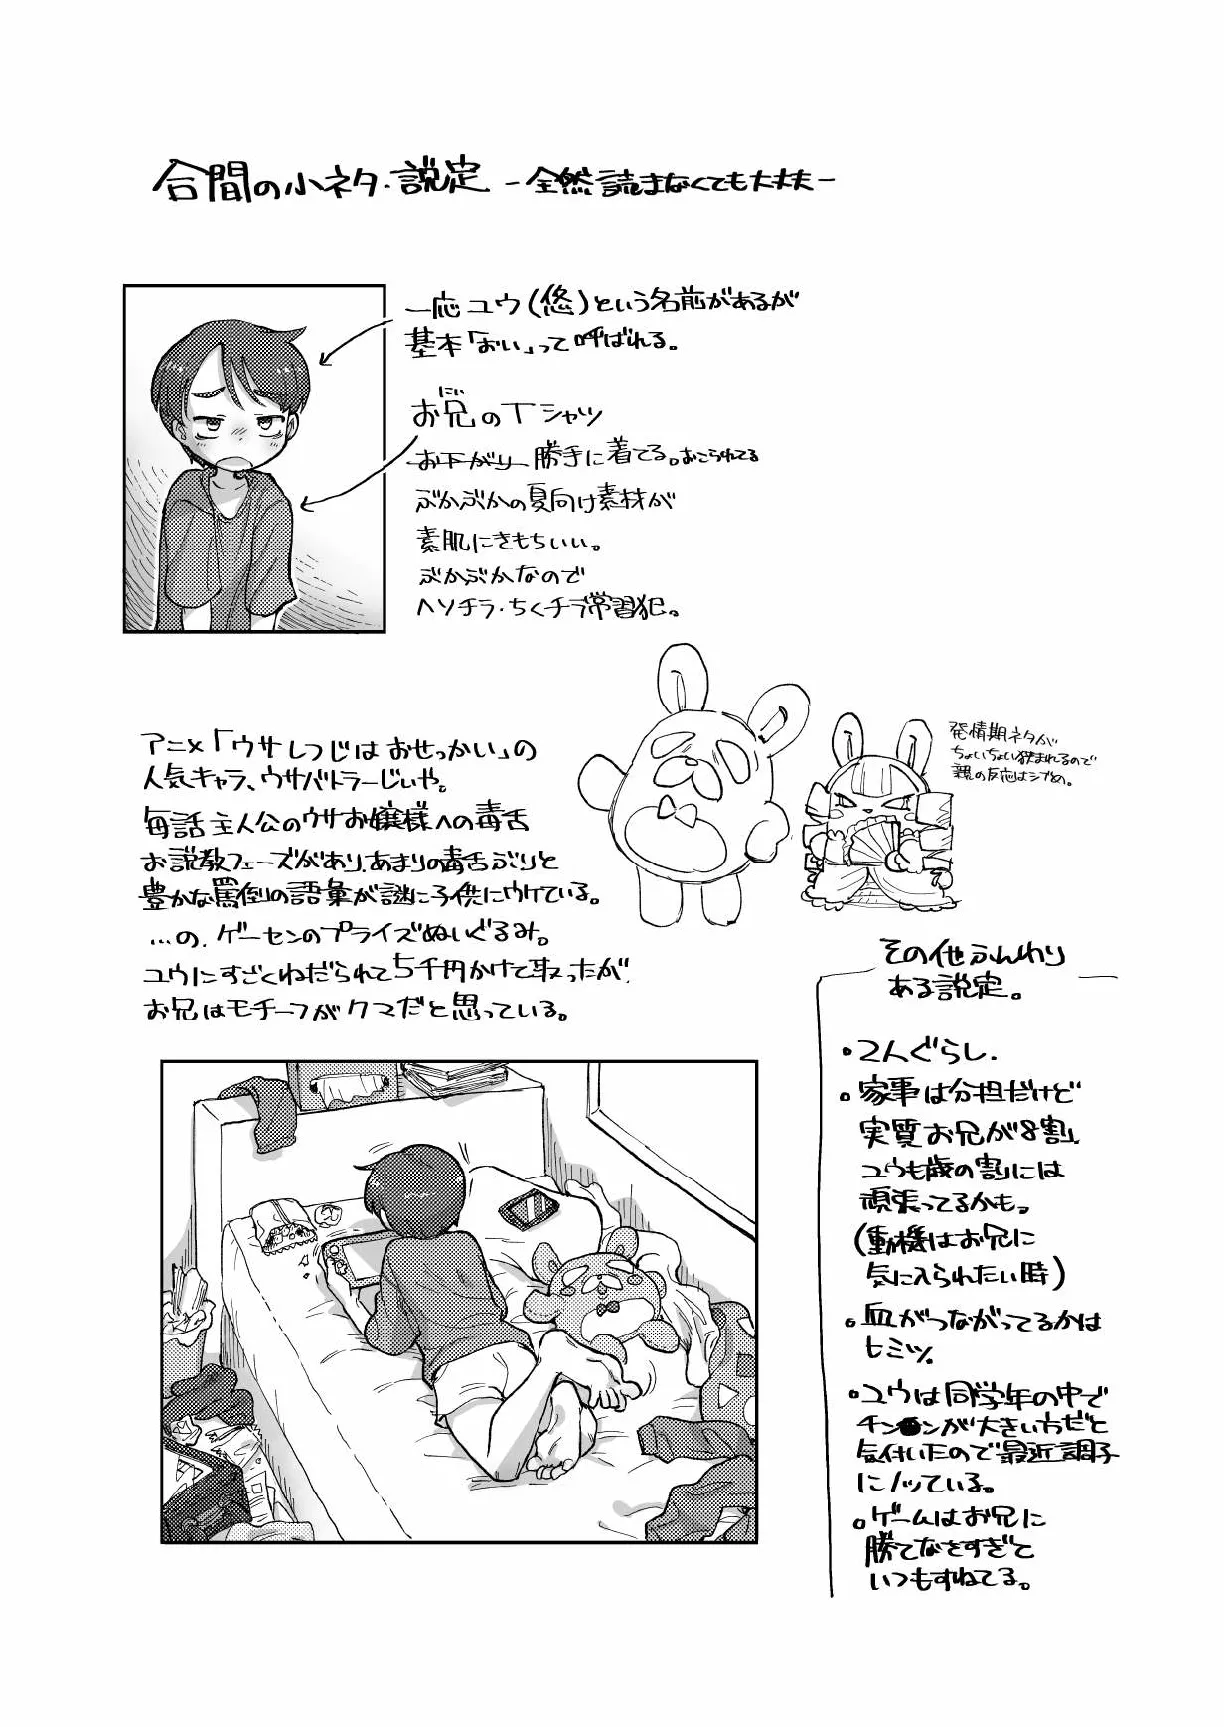 合間の小ネタ・説定 -全然読まなくても大丈夫-
一応ユウ(悠)という名前があるが
基本「おい」って呼ばれる。
にい
お兄のTシャツ
お下がり 勝手に着てる。おこられてる
アニメ「ウサしつじはおせっかい」の
人気キャラ、ウサバトラーじいや。
毎話主人公のウサお嬢様への毒舌
お説教フェーズがあり、あまりの毒舌ぶりと
豊かな罵倒の語彙が謎に子供にウケている。
…の、ゲーセンのプライズぬいぐるみ。
ユウにすごくねだられて5千円かけて取ったが、
お兄はモチーフがクマだと思っている。
発情期ネタが
ちょいちょい挟まれるので
親の反応はシブめ。
その他ふんわり
ある説定。
・2人ぐらし.
・家事は分担だけど
実質お兄が8割、
ユウも歳の割には
頑張ってるかも。
(動機はお兄に
気に入られたい時)
・血がつながってるかは
ヒミツ。
・ゲームはお兄に
勝てなさすぎて
いつもすねてる。